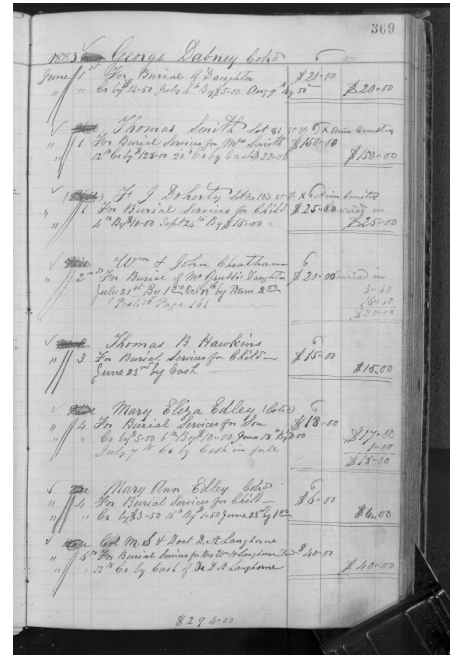 369
1883 George Dabney Cold
June 1st For Burial of Daughter $20-00
" Cr by 14-50 July 4th By $5-00 Aug 9th By 50 $20-00
Thomas Smith Lot 81
" 1 For Burial Services for Mrs Smith $150-00
12th Cr by 128-00 20 Cr by Cash $22-00 $150-00
F. J Doherty
" 1 For Burial Services for Child $25-00
4th By $10-00 Sept 24th By $15-00 $25-00
Wm & John Cheatham
" 2nd For Burial of Daughter $20-00
July 21st By 1 00 by 2 00
Page 161
$20-00
Thomas B Hawkins
" 3 For Burial Services for Child $15-00
June 23rd by Cash $15-00
Mary Eliza Edley (Cold)
" 4 For Burial Services for Son $18-00
Cr by $5-00 6th By $10-00 June 18th By $17-00
July 7th Cr by Cash in full 1-00
$18-00
Mary Ann Edley Cold
" 4 For Burial Services for Child $6-00
" Cr by $3-50 16th By 1-50 June 23rd by 1 00 $6-00
Col M. S & Doct D. A Langhorne
" 5th For Burial Services for $40-00
" 12th Cr by Cash of Dr D A Langhorne $40-00
$294-00